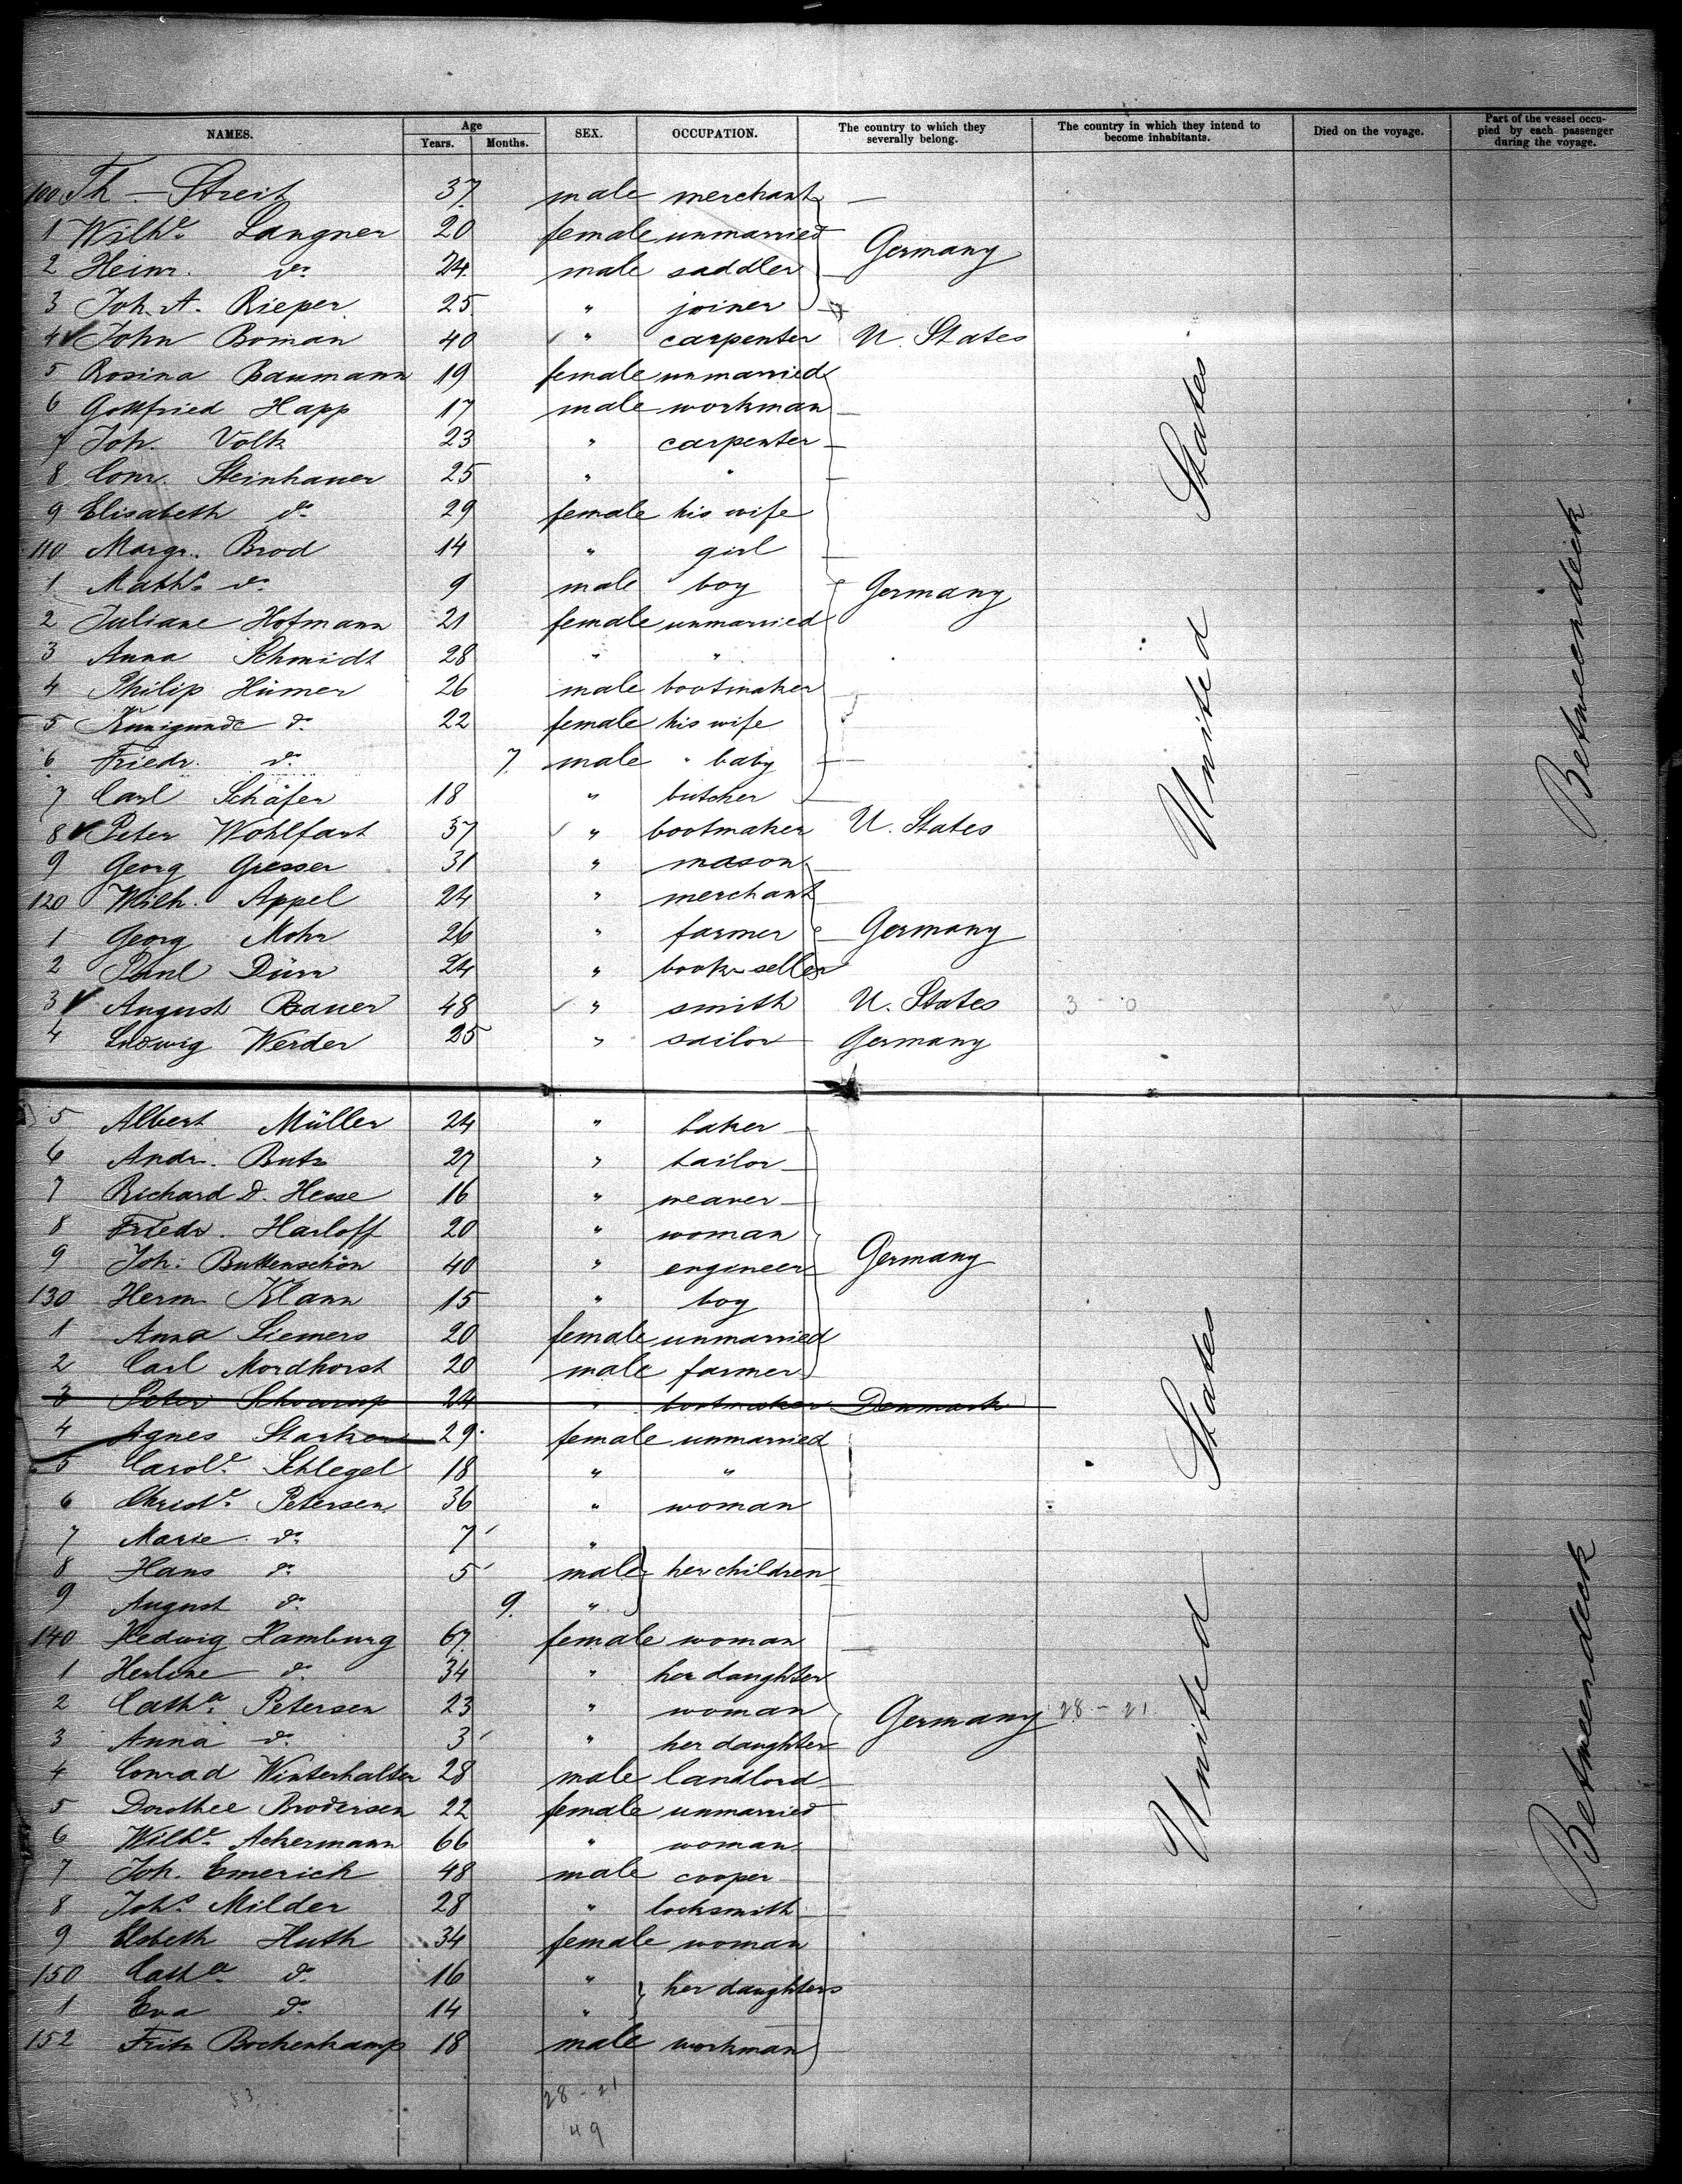 NAMES. Age Years. Months. SEX. OCCUPATION. The country to which they severally belong. The country in which they intend to become inhabitants. Died on the voyage. Part of the vessel occupied by each passenger during the voyage.
100 Th — Streit 37 male merchant —
1 Wilh.e Langner 20 female unmarried
2 Heinr. do. 24 male saddler Germany
3 Joh. A. Rieper 25 " joiner
4 ✓ John Boman 40 " carpenter U. States
5 Rosina Baumann 19 female unmarried
6 Gottfried Happ 17 male workman
7 Joh. Volk 23 " carpenter
8 Conr. Steinhauer 25 " "
9 Elisabeth do. 29 female his wife
110 Margr. Brod 14 " girl
1 Matths. do. 9 male boy Germany
2 Juliane Hofmann 21 female unmarried
3 Anna Schmidt 28 " "
4 Philip Hümer 26 male bootmaker
5 Künigunde do. 22 female his wife
6 Friedr. do. 7 male " baby
7 Carl Schäfer 18 " butcher
8 ✓ Peter Wohlfart 37 " bootmaker U. States
9 Georg Gresser 31 " mason
120 Wilh. Appel 24 " merchant
1 Georg Mohr 26 " farmer Germany
2 Paul Dürr 24 " book-seller
3 ✓ August Bauer 48 " smith U. States 3 - 0
4 Ludwig Werder 25 " sailor Germany
United States
Betweendeck
5 Albert Müller 24 " baker
6 Andr. Butz 27 " tailor
7 Richard D. Hesse 16 " weaver
8 Friedr. Harloff 20 " woman
9 Joh. Buttenschön 40 " engineer Germany
130 Herm Klann 15 " boy
1 Anna Siemers 20 female unmarried
2 Carl Mordhorst 20 male farmer
3 Peter 24 " bootmaker Denmark
4 Agnes Starker 29 female unmarried
5 Carole. Schlegel 18 " "
6 Christe. Petersen 36 " woman
7 Marie do. 7 "
8 Hans do. 5 male her children
9 August do. 9 "
140 Hedwig Hamburg 67 female woman
1 Herline do. 34 " her daughter
2 Catha. Petersen 23 " woman Germany 28 - 21
3 Anna do. 3 " her daughter
4 Conrad Winterhalter 28 male landlord
5 Dorothee Brodersen 22 female unmarried
6 Wilhe. Ackermann 66 " woman
7 Joh. Emerich 48 male cooper
8 Johs. Milder 28 " locksmith
9 Elsbeth Huth 34 female woman
150 Catha. do. 16 " her daughters
1 Eva do. 14 "
152 Fritz Bockenkamp 18 male workman
United States
Betweendeck
53
28 - 21
49